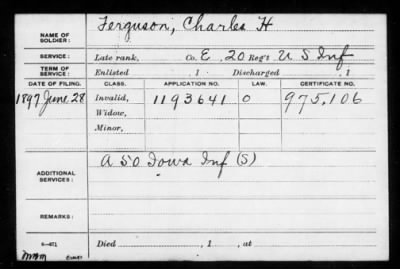 NAME OF SOLDIER: Ferguson, Charles H
SERVICE: Late rank, Co. E, 20 Reg't U S Inf
TERM OF SERVICE: Enlisted , 1 Discharged , 1
DATE OF FILING. CLASS. APPLICATION NO. LAW. CERTIFICATE NO.
1897 June 28 Invalid, 1193641 0 975,106
Widow,
Minor,
ADDITIONAL SERVICES: A 50 Iowa Inf (S)
REMARKS:
Died , 1 , at